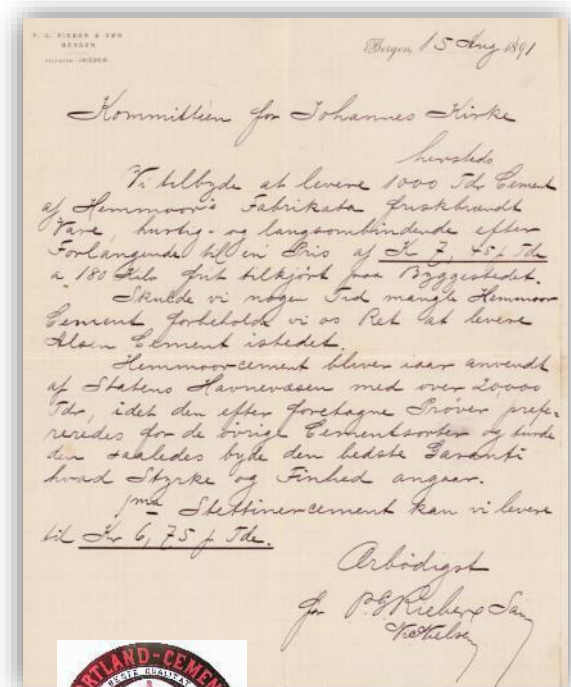 P. G. RIEBER & SØN
BERGEN
Bergen, 15 Aug 1891
Kommittéen for Johannes Kirke
hersteds
Vi tilbyde at levere 1000 Tdr Cement
af Hemmoor's Fabrikata friskbrændt
Vare, hurtig- og langsombindende efter
Forlangende til en Pris af Kr 7,45 p Tde
a 180 Kilo frit tilkjört paa Byggestedet.
Skulde vi nogen Tid mangle Hemmoor
Cement forbeholde vi os Ret at levere
Alsen Cement istedet.
Hemmoorcement bliver iaar anvendt
af Statens Havnevæsen med over 20,000
Tdr, idet den efter foretagne Pröver præfe-
reredes for de övrige Cementsorter og turde
den saaledes byde den bedste Garanti
hvad Styrke og Finhed angaar.
pma Stettinercement kan vi levere
til Kr 6,75 p Tde.
Ærbödigst
for P. G. Rieber & Sön
Nielsen
PORTLAND-CEMENT
BESTE QUALITÄT